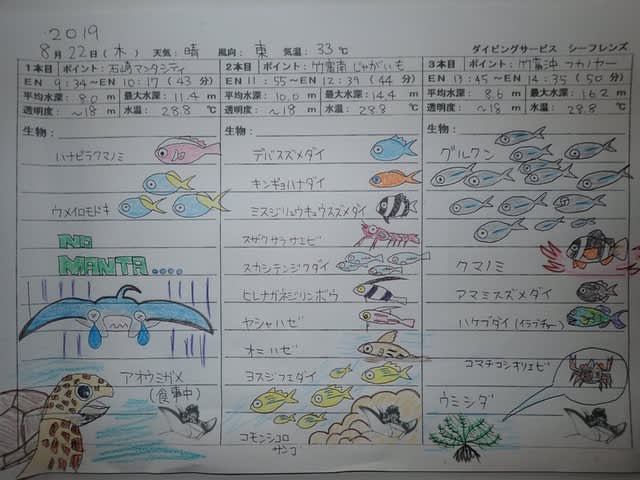 2019
8月22日(木) 天気:晴 風向:東 気温:33℃
ダイビングサービス シーフレンズ
1本目 ポイント:石崎マンタシティ
EN 9:34~EN 10:17(43分)
平均水深:8.0m 最大水深:11.4m
透明度:~18m 水温:28.8℃
生物:
ハナビラクマノミ
ウメイロモドキ
NO
MANTA....
アオウミガメ
(食事中)
2本目 ポイント:竹富南じゃがいも
EN 11:55~EN 12:39(44分)
平均水深:10.0m 最大水深:14.4m
透明度:~18m 水温:28.8℃
生物:
デバスズメダイ
キンギョハナダイ
ミスジリュウキュウスズメダイ
スザクサラサエビ
スカシテンジクダイ
ヒレナガネジリンボウ
ヤシャハゼ
オニハゼ
ヨスジフエダイ
コモンシコロ
サンゴ
3本目 ポイント:竹富沖
EN 13:45~EN 14:35(50分)
平均水深:8.6m 最大水深:16.2m
透明度:~18m 水温:28.8℃
生物:
グルクン
クマノミ
アマミスズメダイ
ハゲブダイ(イラブチャー)
コマチコシオリエビ
ウミシダ